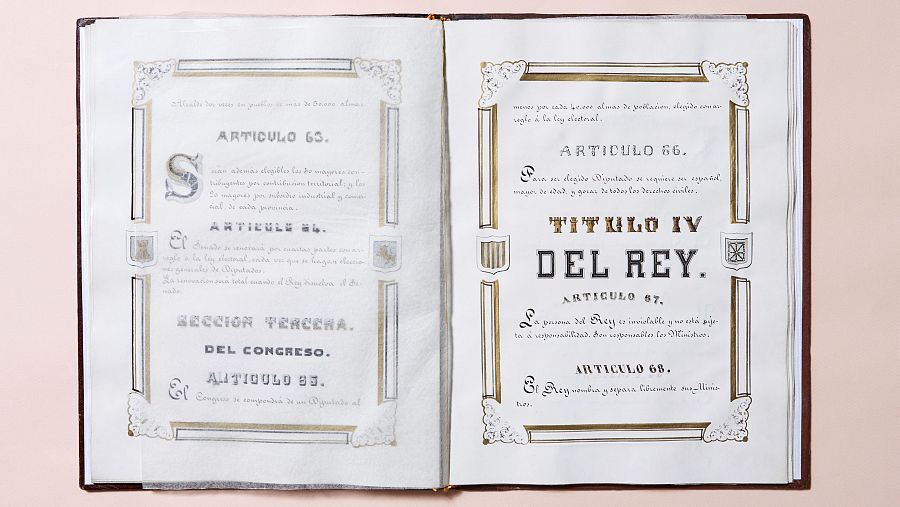 Alcalde dos veces en pueblos de mas de 30.000 almas.
ARTICULO 63.
Serán además elegibles los 50 mayores con-
tribuyentes por contribucion territorial; y los
20 mayores por subsidio industrial y comer-
cial, de cada provincia.
ARTICULO 64.
El Senado se renovará por cuartas partes con ar-
reglo á la ley electoral, cada vez que se hagan eleccio-
nes generales de Diputados.
La renovacion será total cuando el Rey disuelva el Se-
nado.
SECCION TERCERA.
DEL CONGRESO.
ARTICULO 65.
El Congreso se compondrá de un Diputado al
menos por cada 40.000 almas de poblacion, elegido con ar-
reglo á la ley electoral.
ARTICULO 66.
Para ser elegido Diputado se requiere ser español,
mayor de edad, y gozar de todos los derechos civiles.
TITULO IV
DEL REY.
ARTICULO 67.
La persona del Rey es inviolable y no está suje-
ta á responsabilidad. Son responsables los Ministros.
ARTICULO 68.
El Rey nombra y separa libremente sus Minis-
tros.